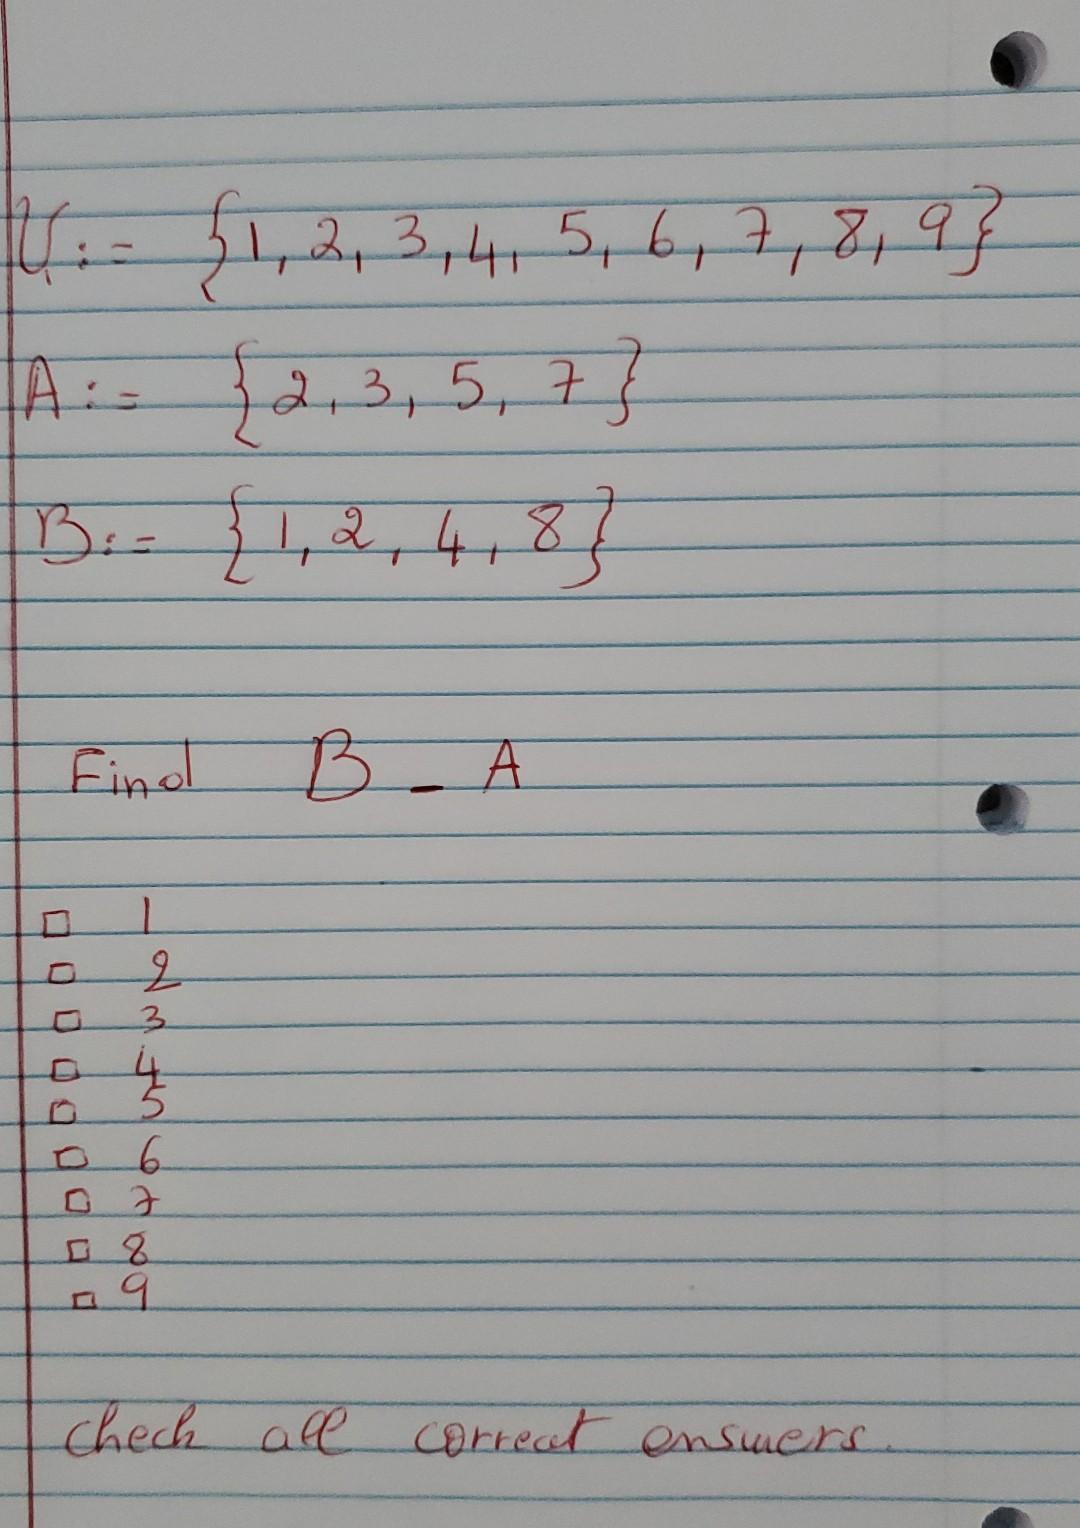 U := {1, 2, 3, 4, 5, 6, 7, 8, 9}
A := {2, 3, 5, 7}
B := {1, 2, 4, 8}
Find B - A
□ 1
□ 2
□ 3
□ 4
□ 5
□ 6
□ 7
□ 8
□ 9
check all correct answers.